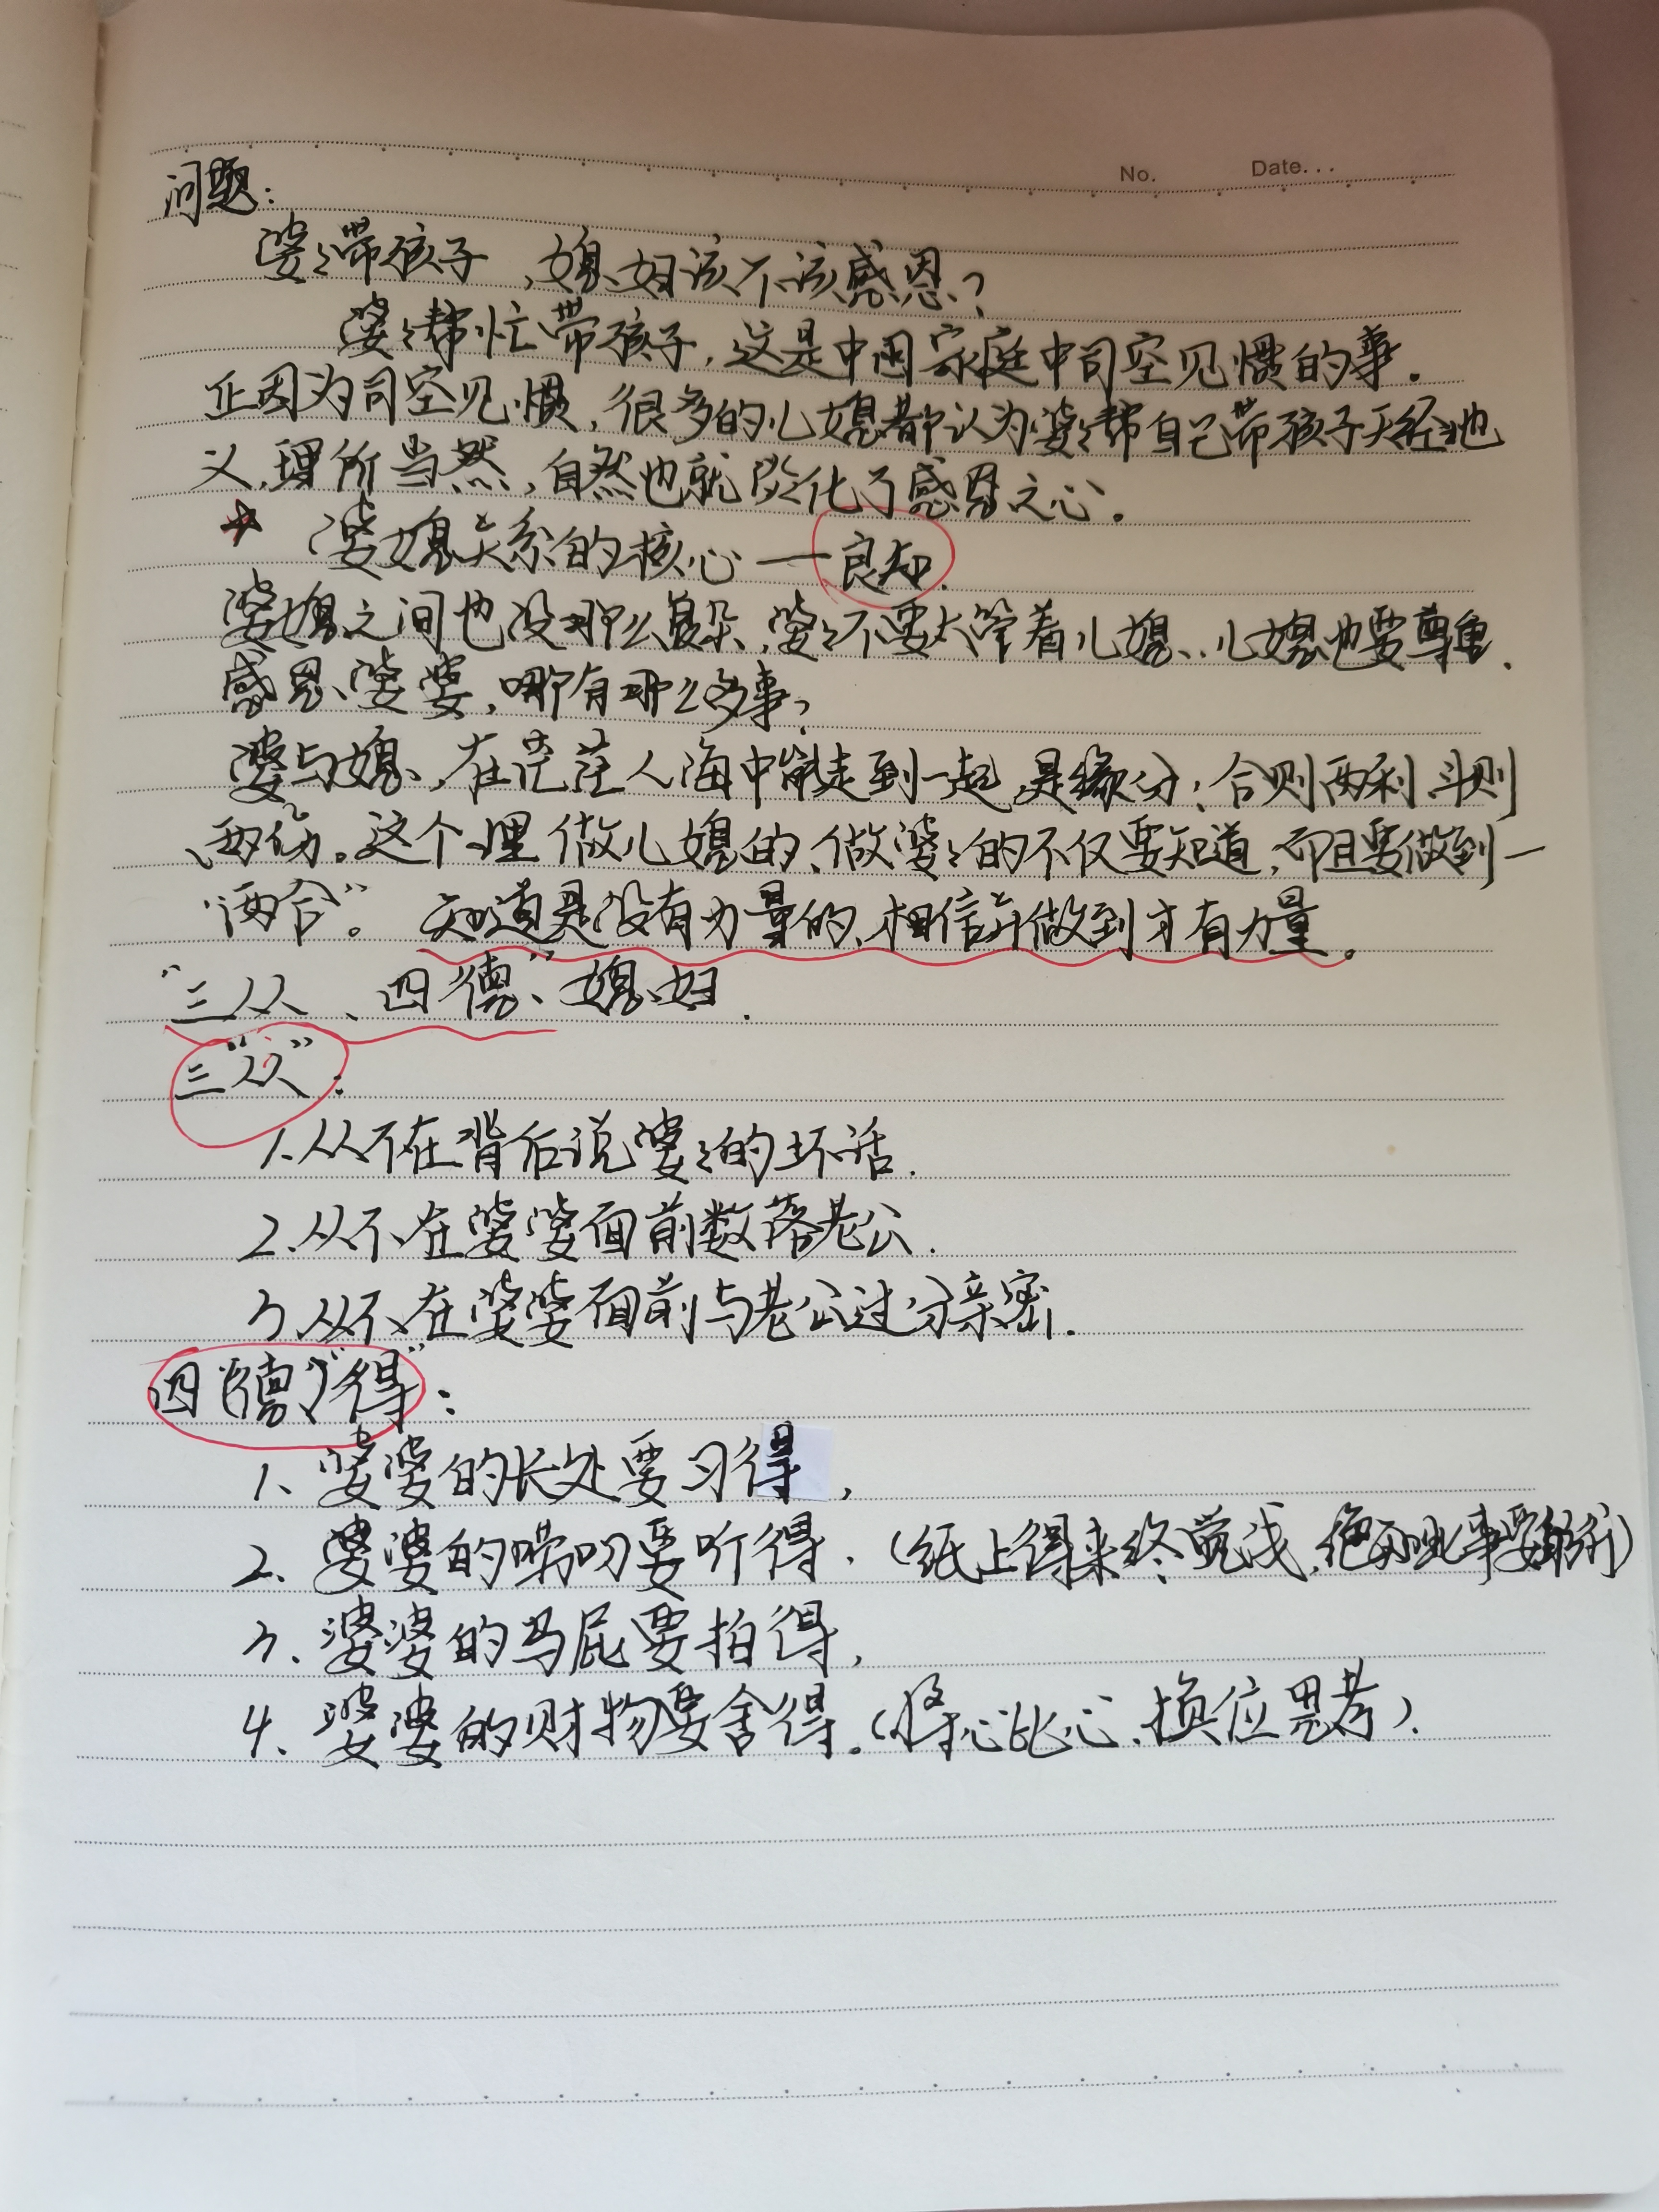 No. Date...
问题:
婆婆带孩子,媳妇该不该感恩?
婆婆帮忙带孩子,这是中国家庭中司空见惯的事.
正因为司空见惯,很多的儿媳都认为婆婆帮自己带孩子天经地
义,理所当然,自然也就淡化了感恩之心.
婆媳关系的核心—良知.
婆媳之间也没那么复杂,婆婆不要太管着儿媳、儿媳也要尊重、
感恩婆婆,哪有那么多事?
婆与媳,在茫茫人海中能走到一起,是缘分;合则两利,斗则
两伤。这个理做儿媳的、做婆婆的不仅要知道,而且要做到—
“两合”。知道是没有力量的,相信并做到才有力量。
“三从、四德”媳妇.
三“从”:
1.从不在背后说婆婆的坏话.
2.从不在婆婆面前数落老公.
3.从不在婆婆面前与老公过分亲密.
四“(德)”“得”:
1、婆婆的长处要习得,
2、婆婆的唠叨要听得.(纸上得来终觉浅,绝知此事要躬行)
3、婆婆的马屁要拍得,
4、婆婆的财物要舍得.(将心比心、换位思考).